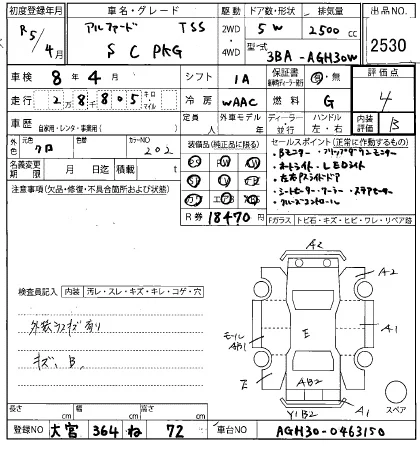 初度登録年月 車名・グレード 駆動 ドア数・形状 排気量 出品NO
R5/4月 アルファード TSS 2WD 4WD 5W 2500cc 2530
S C PKG 型式 3BA-AGH30W
車検 8年4月 シフト IA 保証書 有・無 評価点
走行 2万8805 キロ・マイル 冷房 WAAC 燃料 G 4
車歴 自家用・レンタ・事業用( ) 定員 人 外車モデル 年 ディーラー・並行 ハンドル 左・右 内装評価 B
外色 元色 クロ 色替 カラーNO 202 装備品(純正品に限る) セールスポイント(正常に作動するもの)
名義変更期限 月 日迄 積載 t
・Bモニター・フリップダウンモニター
・オートライト・LEDライト
・左右Pスライドドア
・シートヒーター・クーラー・ステアヒーター
・クルーズコントロール
注意事項(欠品・修復・不具合箇所および状態)
PS PW
R券 18470円
Fガラス トビ石・キズ・ヒビ・ワレ・リペア跡
A2
A2
検査員記入 内装 汚レ・スレ・キズ・キレ・コゲ・穴
外装ウスキズ有り
モール AB1
E
A1
キズ、B
E
AB2
スペア
Y1B2
A1
長さ cm 幅 cm 高さ cm
登録NO 大宮 364 ね 72 車台NO AGH30-0463150